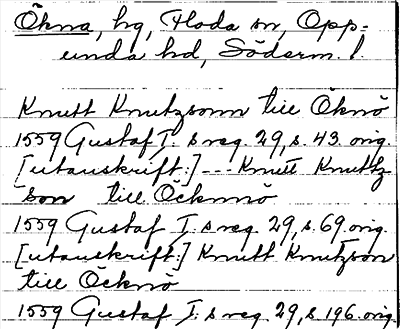 Ökna, hg, Floda sn, Opp-
unda hd, Söderm. l
Knutt Knutzsonn till Öknö
1559 Gustaf I:s reg. 29, s. 43. orig.
[utanskrift:] --- Knutt Knuttz
son till Öcknnö
1559 Gustaf I:s reg. 29, s. 69. orig.
[utanskrift:] Knutt Knutzson
till Öcknö
1559 Gustaf I:s reg. 29, s. 196. orig.